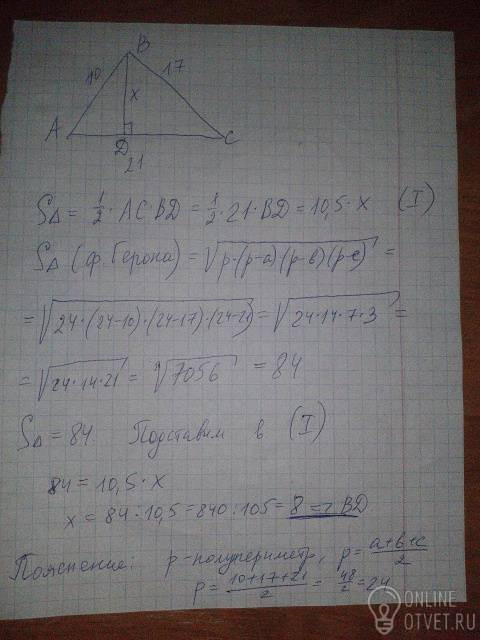 B
10 17
x
A D C
21
S∆ = 1/2 · AC BD = 1/2 · 21 · BD = 10,5 · x (I)
S∆ (ф. Герона) = √p·(p-a)(p-в)(p-c) =
= √24·(24-10)·(24-17)·(24-21) = √24·14·7·3 =
= √24·14·21 = √7056 = 84
S∆ = 84. Подставим в (I)
84 = 10,5 · x
x = 84 : 10,5 = 840 : 105 = 8 => BD
Пояснение: p - полупериметр, p = a+в+c/2
p = 10+17+21/2 = 48/2 = 24
ONLINE
OTVET.RU